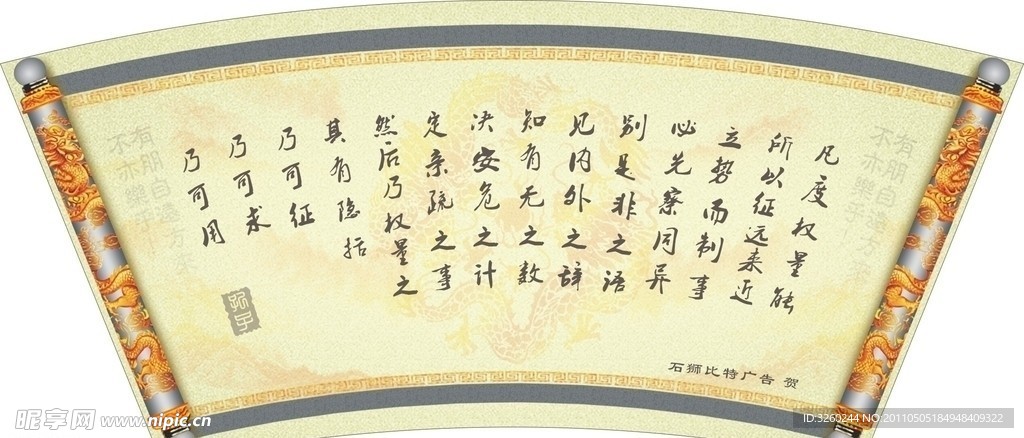 凡度权量能
所以征远来近
立势而制事
必先察同异
别是非之语
见内外之辞
知有无之数
决安危之计
定亲疏之事
然后乃权量之
其有隐括
乃可征
乃可求
乃可用
石狮比特广告 贺
有朋自遠方来
不亦樂乎!
有朋自遠方来
不亦樂乎!
昵享网 www.nipic.cn
ID:3260244 NO:20110505184948409322